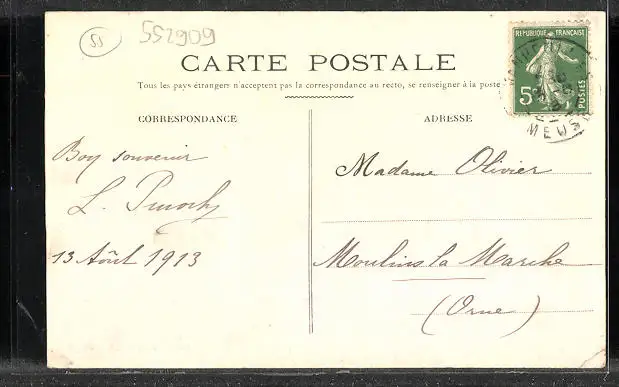 55
552909
CARTE POSTALE
Tous les pays étrangers n'acceptent pas la correspondance au recto, se renseigner à la poste
CORRESPONDANCE
ADRESSE
REPUBLIQUE FRANÇAISE
5c
POSTES
MEUSE
Bon souvenir
L.
13 Août 1913
Madame Olivier
Moulins la Marche
(Orne)